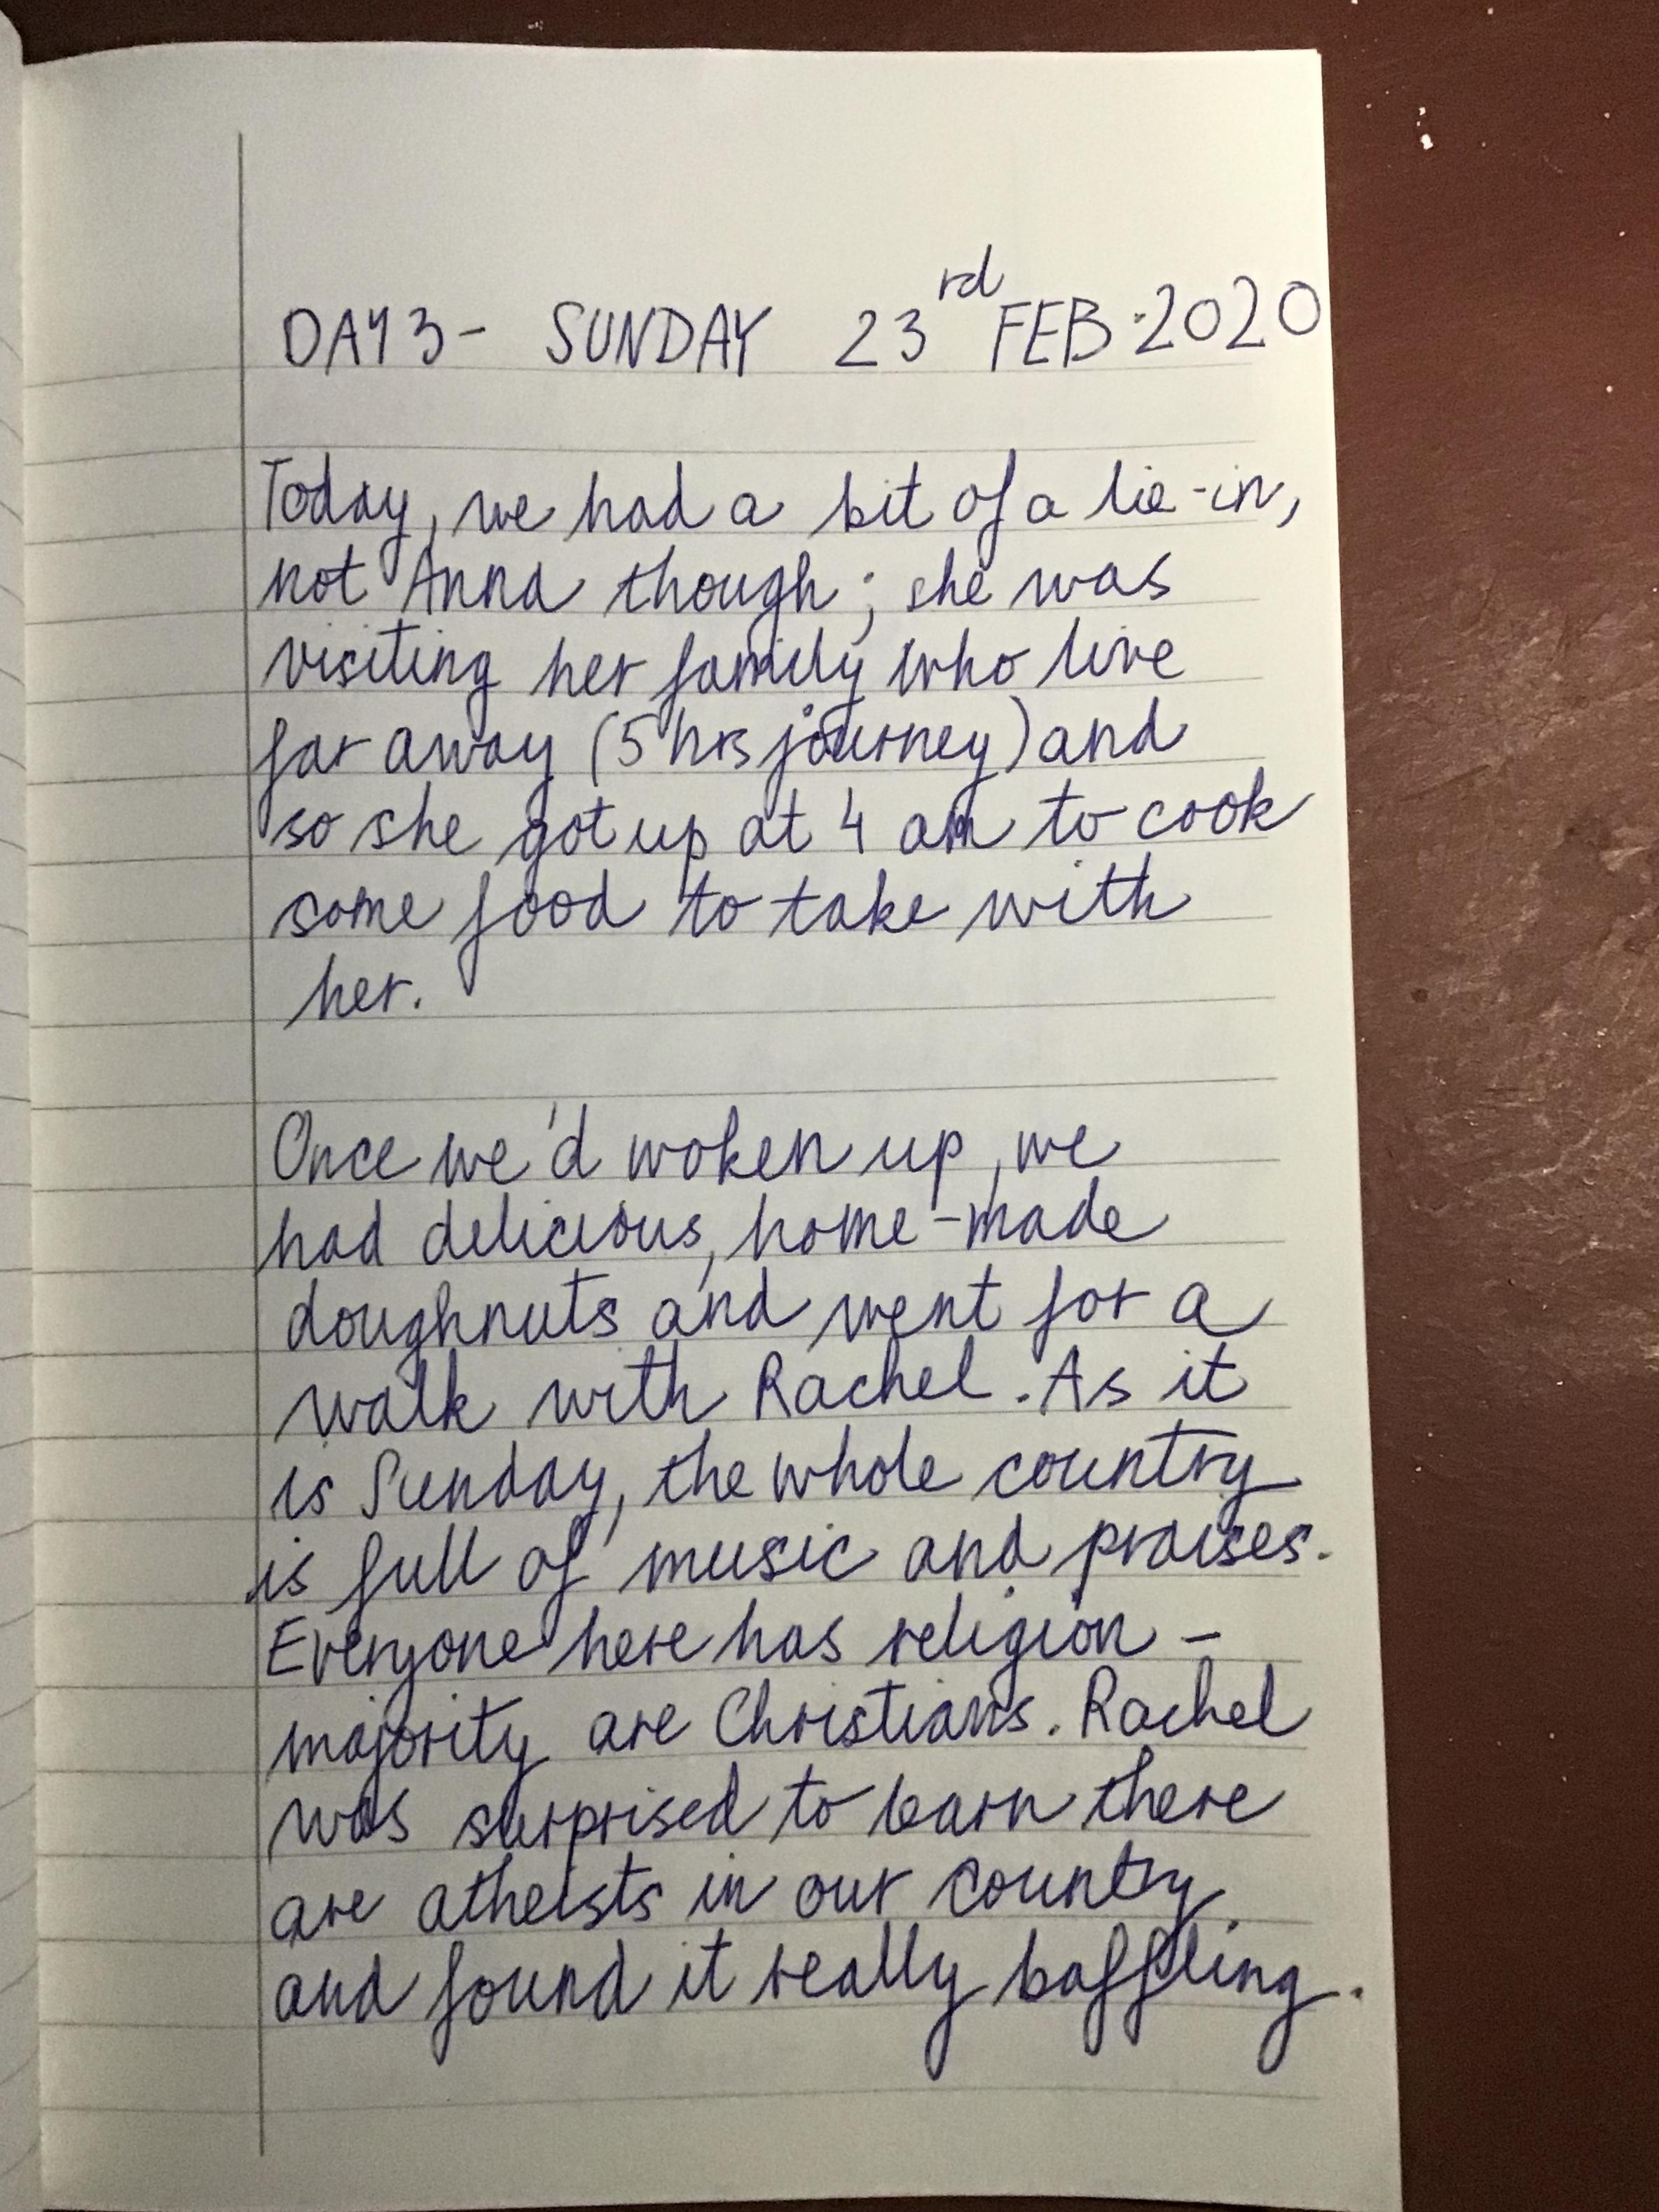 DAY 3 - SUNDAY 23rd FEB. 2020
Today, we had a bit of a lie-in,
not Anna though; she was
visiting her family who live
far away (5 hrs journey) and
so she got up at 4 am to cook
some food to take with
her.
Once we'd woken up, we
had delicious, home-made
doughnuts and went for a
walk with Rachel. As it
is Sunday, the whole country
is full of music and praises.
Everyone here has religion -
majority are Christians. Rachel
was surprised to learn there
are atheists in our country
and found it really baffling.